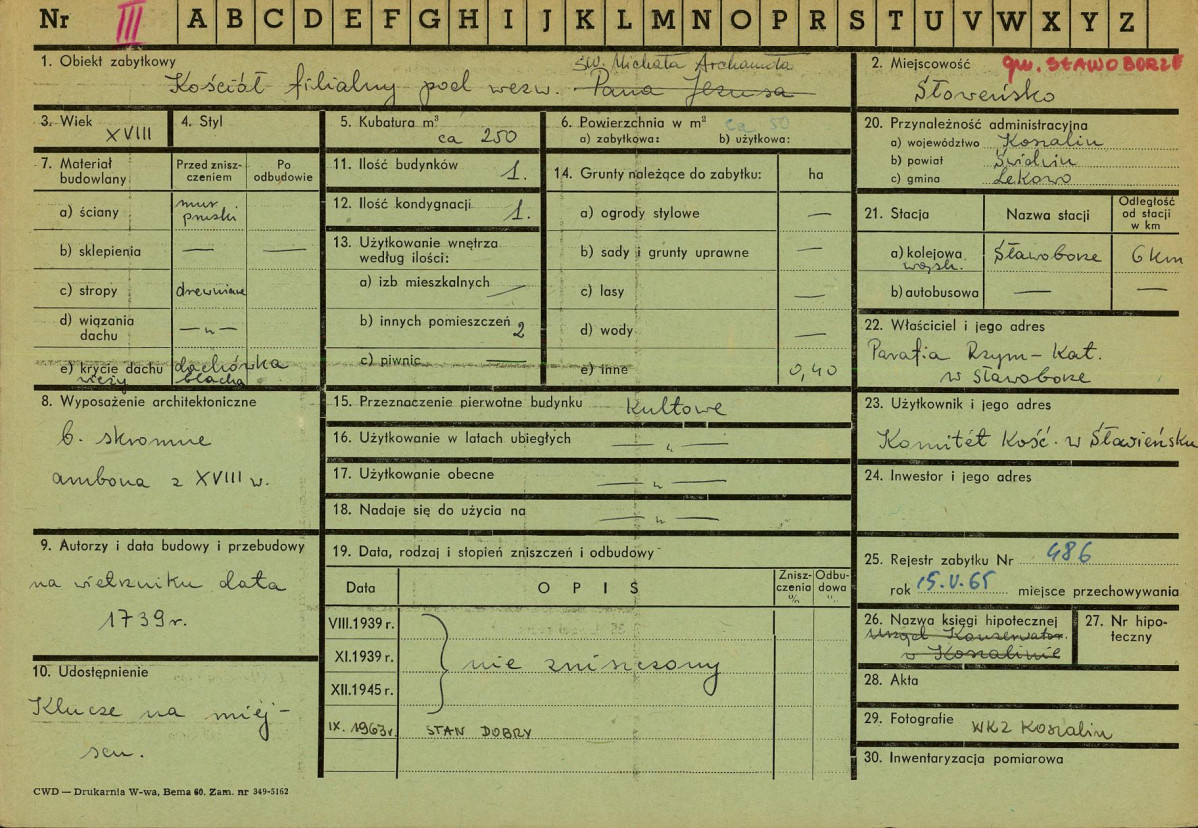 Nr III A B C D E F G H I J K L M N O P R S T U V W X Y Z
1. Obiekt zabytkowy
św. Michała Archanioła
Kościół filialny pod wezw. Pana Jezusa
2. Miejscowość gm. SŁAWOBORZE
Słoweńsko
3. Wiek XVIII
4. Styl
5. Kubatura m³
ca 250
6. Powierzchnia w m² ca 50
a) zabytkowa: b) użytkowa:
7. Materiał budowlany
Przed zniszczeniem
Po odbudowie
a) ściany mur pruski
b) sklepienia — —
c) stropy drewniane
d) wiązania dachu —„—
e) krycie dachu dachówka
wieży blacha
8. Wyposażenie architektoniczne
b. skromne
ambona z XVIII w.
9. Autorzy i data budowy i przebudowy
na wietrzniku data
1739 r.
10. Udostępnienie
Klucze na miej-
scu.
11. Ilość budynków 1.
12. Ilość kondygnacji 1.
13. Użytkowanie wnętrza
według ilości:
a) izb mieszkalnych —
b) innych pomieszczeń 2
c) piwnic —
14. Grunty należące do zabytku: ha
a) ogrody stylowe —
b) sady i grunty uprawne —
c) lasy —
d) wody —
e) inne 0,40
15. Przeznaczenie pierwotne budynku kultowe
16. Użytkowanie w latach ubiegłych —„—
17. Użytkowanie obecne —„—
18. Nadaje się do użycia na —„—
19. Data, rodzaj i stopień zniszczeń i odbudowy
Data OPIS Zniszczenia % Odbudowa %
VIII.1939 r.
XI.1939 r. nie zniszczony
XII.1945 r.
IX. 1963 r. STAN DOBRY
20. Przynależność administracyjna
a) województwo Koszalin
b) powiat Świdwin
c) gmina Lekowo
21. Stacja Nazwa stacji Odległość od stacji w km
a) kolejowa Sławoborze 6 km
wąsk.
b) autobusowa — —
22. Właściciel i jego adres
Parafia Rzym-Kat.
w Sławoborze
23. Użytkownik i jego adres
Komitét Kość. w Sławieńsku
24. Inwestor i jego adres
25. Rejestr zabytku Nr 486
rok 15.V.65 miejsce przechowywania
26. Nazwa księgi hipotecznej
Urząd Konserwator.
w Koszalinie
27. Nr hipoteczny
28. Akta
29. Fotografie WKZ Koszalin
30. Inwentaryzacja pomiarowa
CWD — Drukarnia W-wa, Bema 60. Zam. nr 349-5162